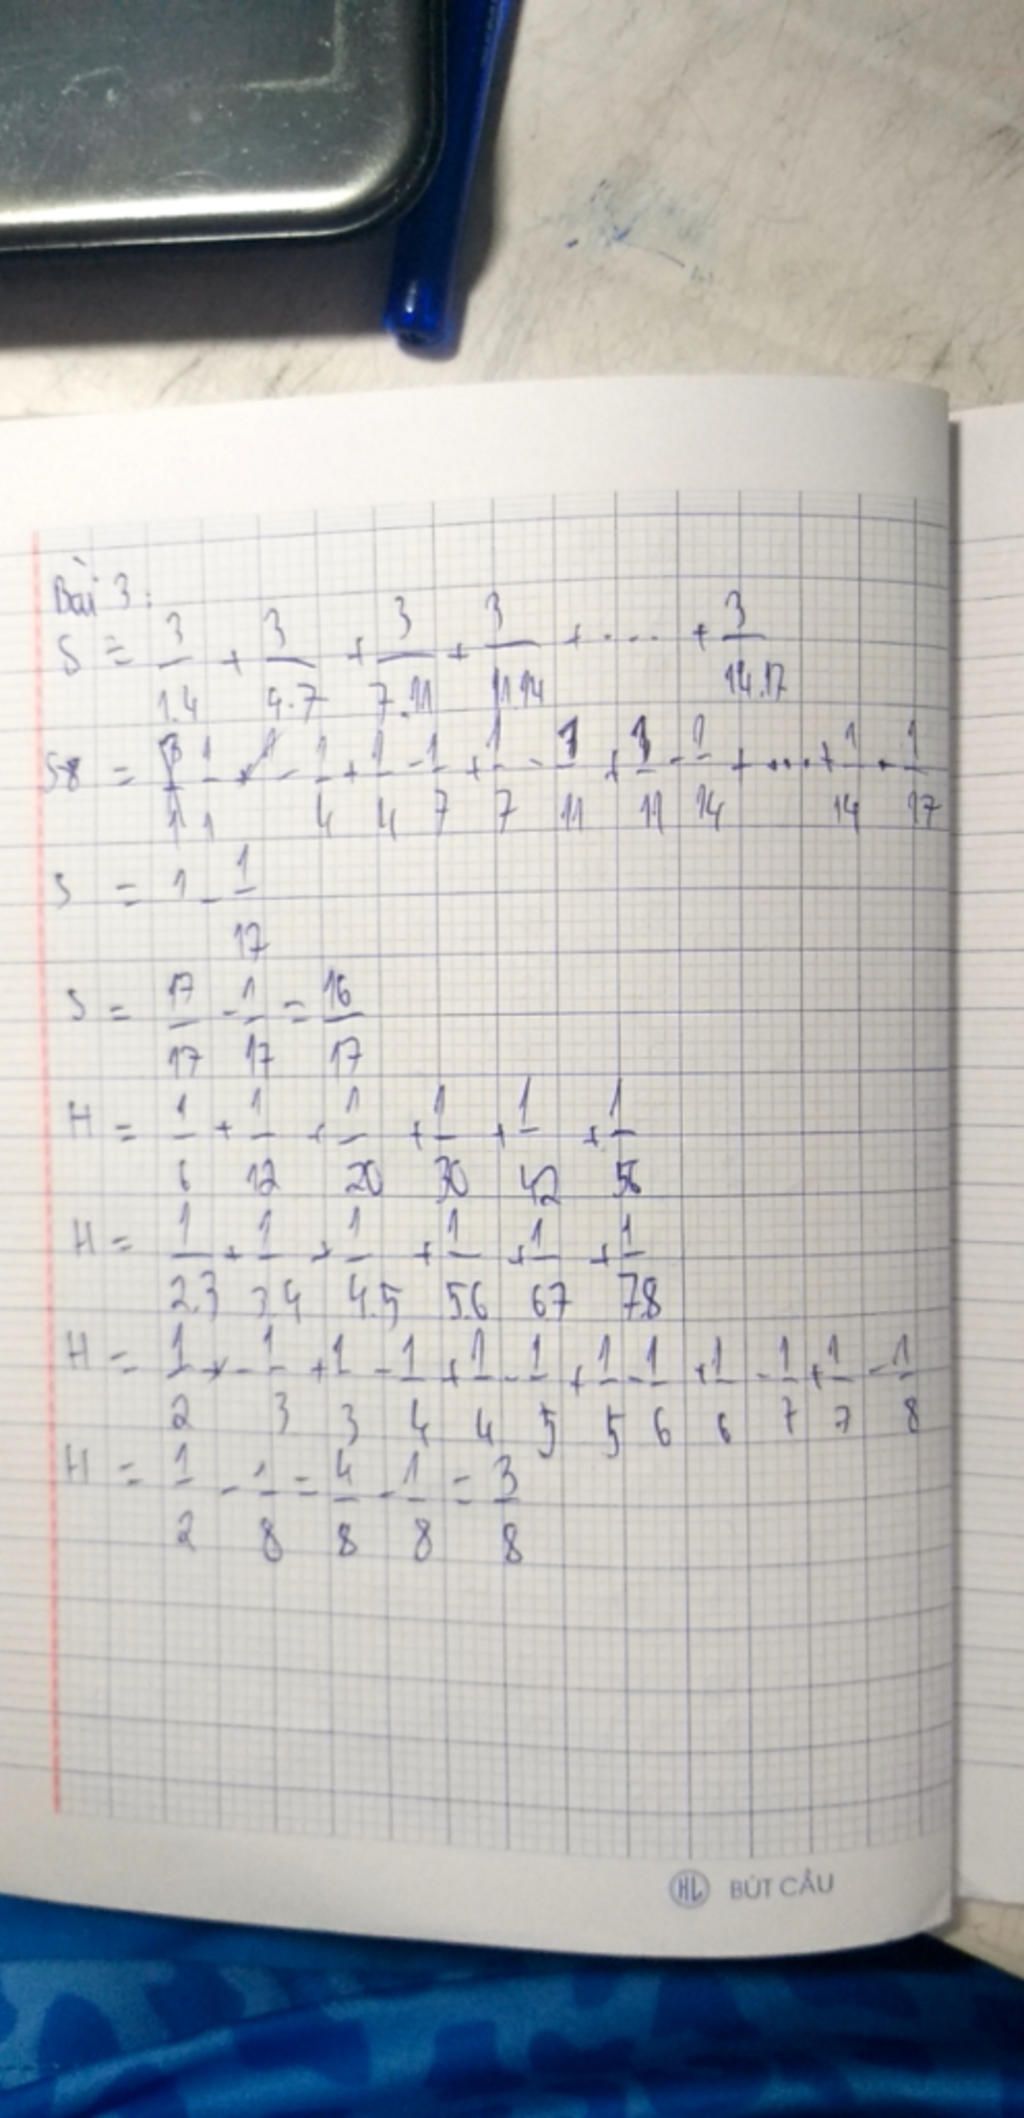 Bài 3:
S = 3/1.4 + 3/4.7 + 3/7.11 + 3/11.14 + .... + 3/14.17
S = 1/1 - 1/4 + 1/4 - 1/7 + 1/7 - 1/11 + 1/11 - 1/14 + .... + 1/14 - 1/17
S = 1 - 1/17
S = 17/17 - 1/17 = 16/17
H = 1/6 + 1/12 + 1/20 + 1/30 + 1/42 + 1/56
H = 1/2.3 + 1/3.4 + 1/4.5 + 1/5.6 + 1/67 + 1/78
H = 1/2 - 1/3 + 1/3 - 1/4 + 1/4 - 1/5 + 1/5 - 1/6 + 1/6 - 1/7 + 1/7 - 1/8
H = 1/2 - 1/8 = 4/8 - 1/8 = 3/8
HL BÚT CÂU